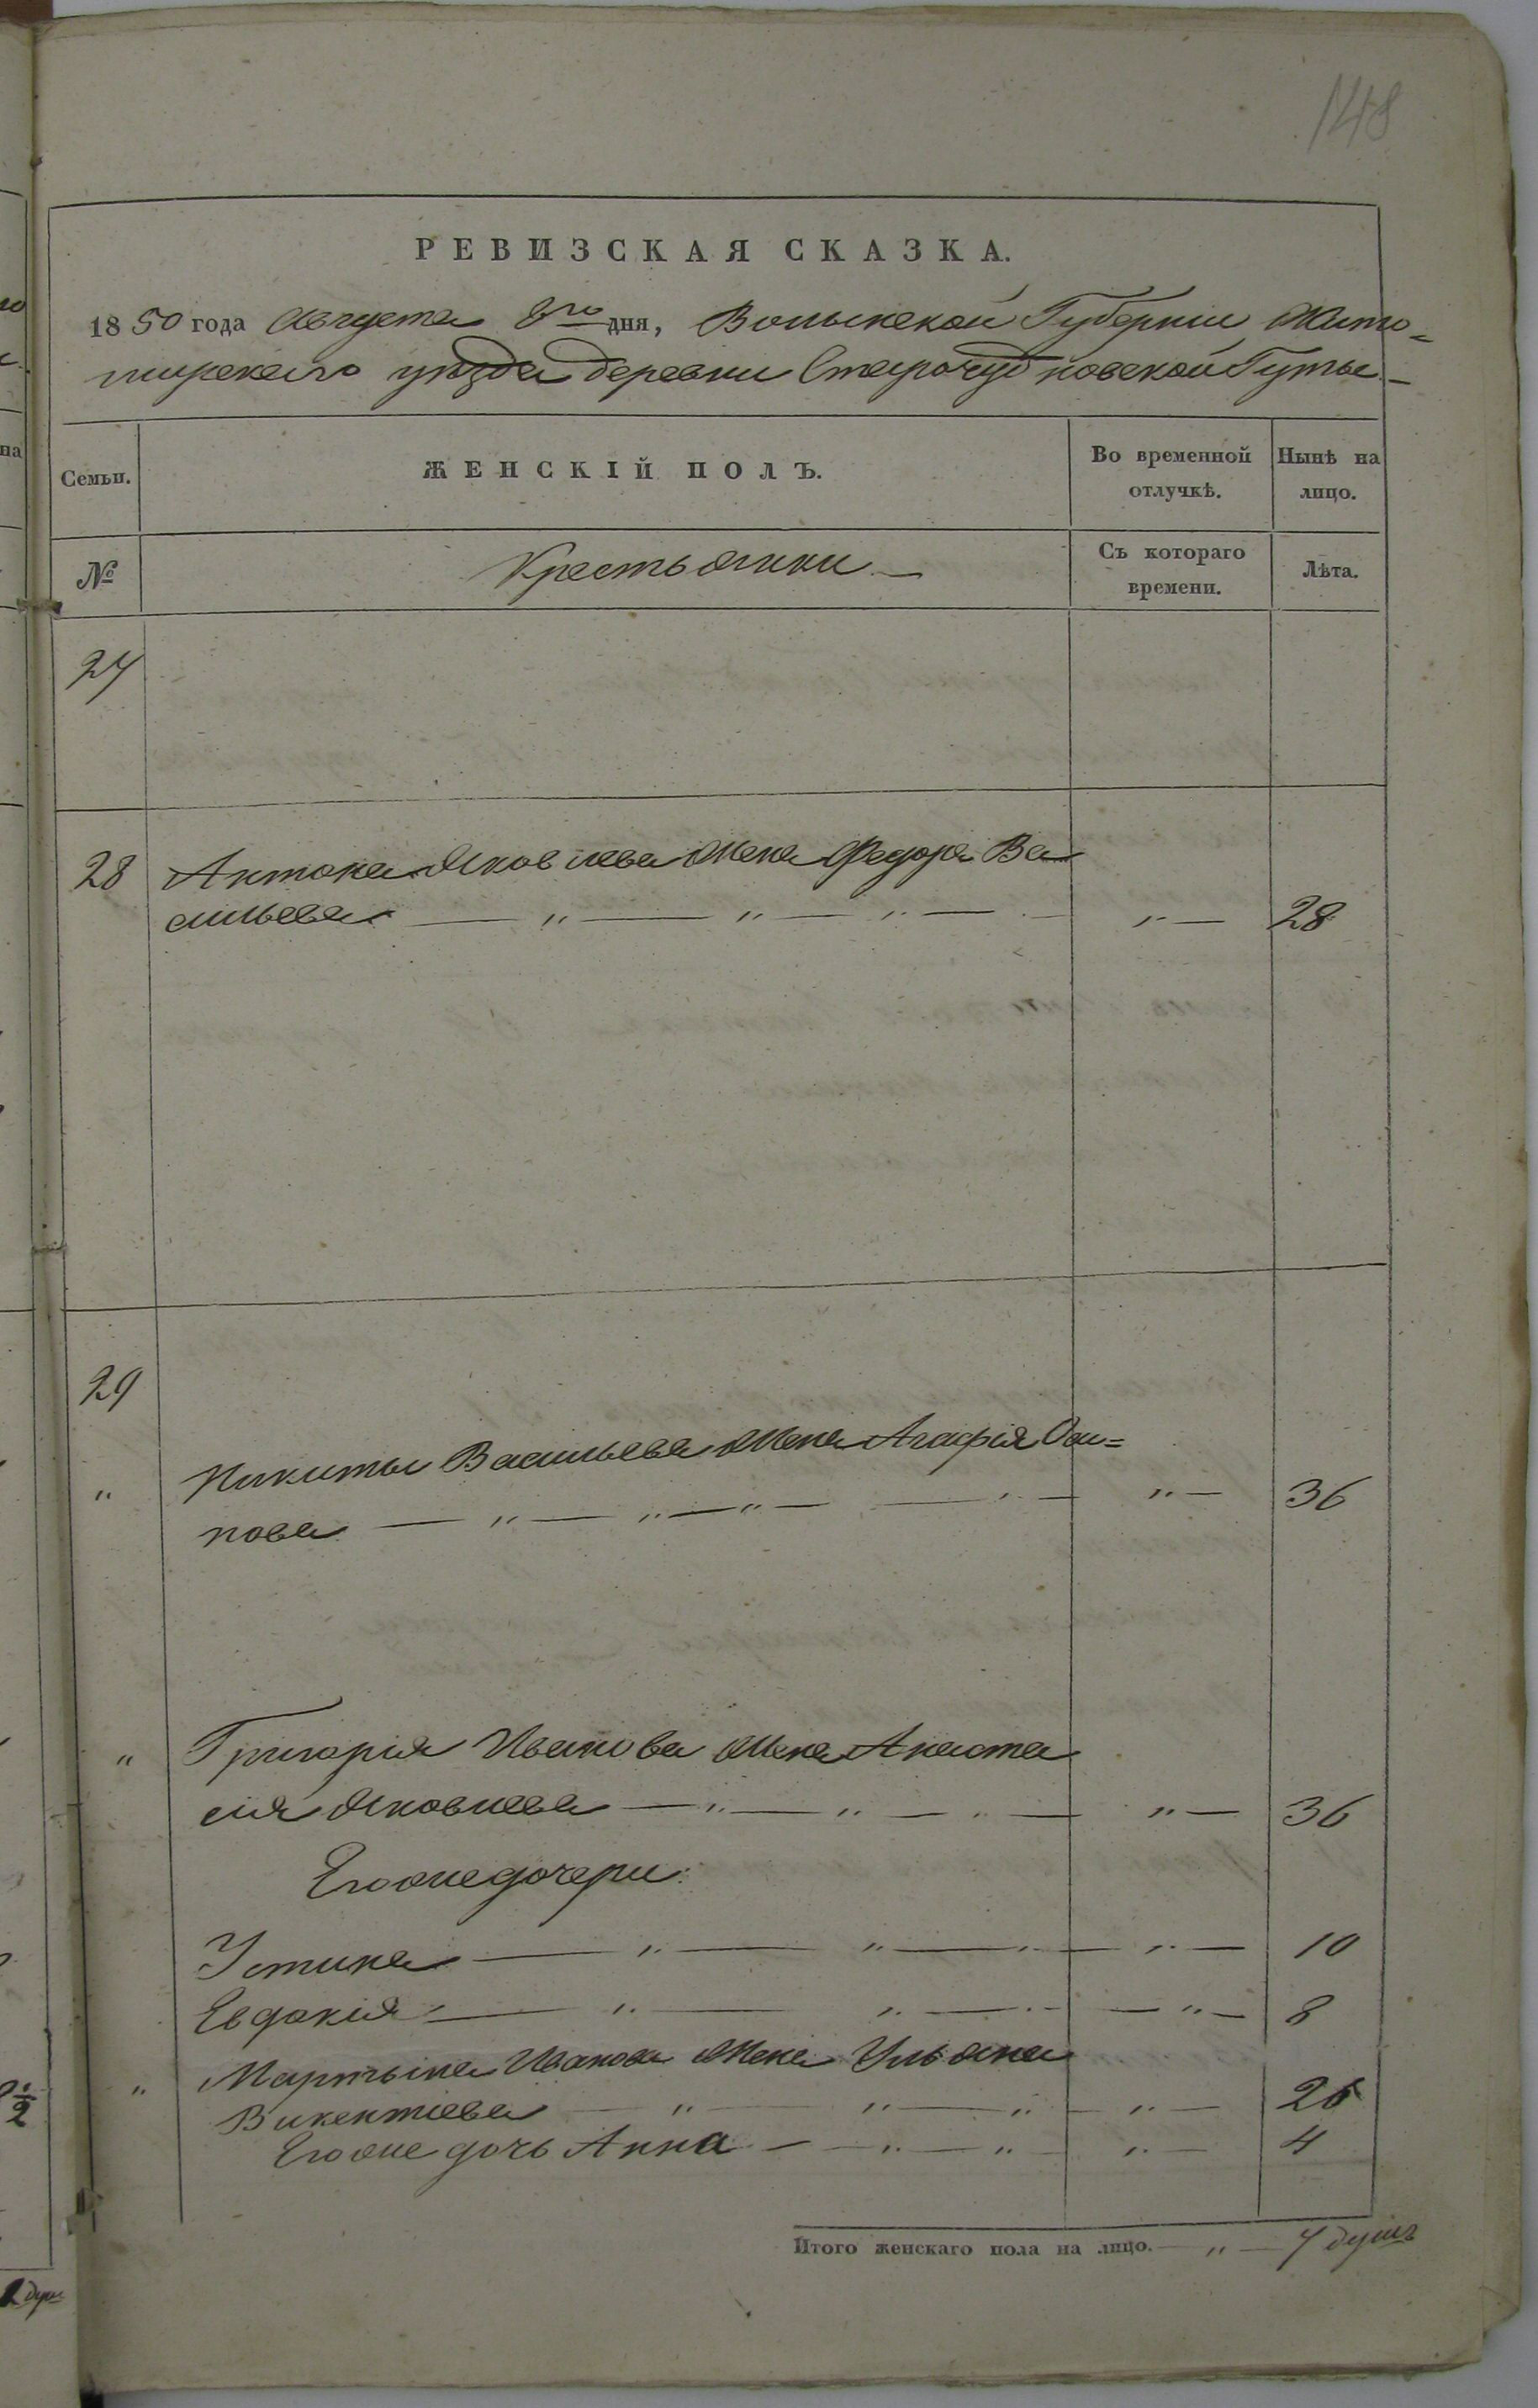 148
РЕВИЗСКАЯ СКАЗКА.
1850 года Августа 8го дня, Волынской Губерніи Жито=
мирскаго уѣзда деревни Старочудновской Гуты
Семьи. ЖЕНСКІЙ ПОЛЪ. Во временной отлучкѣ. Нынѣ на лицо.
№ Крестьянки Съ котораго времени. Лѣта.
27
28 Антона Яковлева жена Федора Ва
сильева — " — " — " — " — 28
29
" Никиты Васильева жена Агафія Оси=
пова — " — " — " — " — 36
" Григорія Иванова жена Анаста
сія Яковлева — " — " — " — " — 36
Егоже дочери:
Устина — " — " — " — 10
Евдокія — " — " — " — 8
" Мартына Иванова жена Ульяна
Викентіева — " — " — " — 26
Егоже дочь Анна — " — " — " — 4
Итого женскаго пола на лицо. — " — 7 душъ
на
1/2
душ